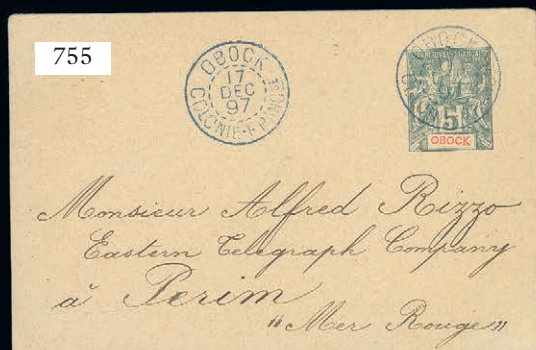 755
OBOCK
17
DEC
97
COLONIE-FRANÇSE
OBOCK
5
OBOCK
Monsieur Alfred Rizzo
Eastern Telegraph Company
à Perim
"Mer Rouge"